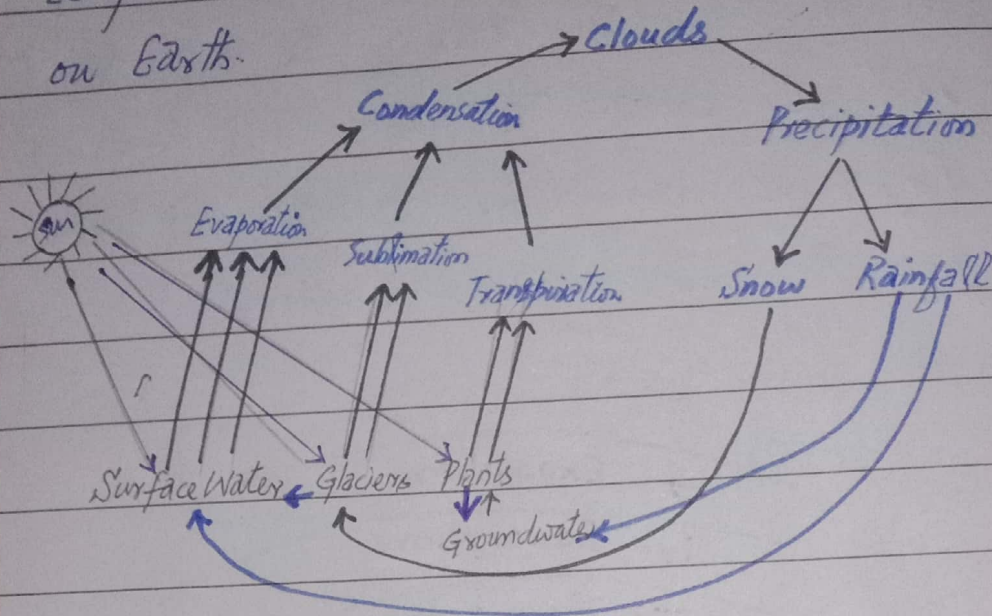 on Earth.
Clouds
Condensation
Precipitation
Sun
Evaporation
Sublimation
Transpiration
Snow
Rainfall
Surface Water
Glaciers
Plants
Groundwater